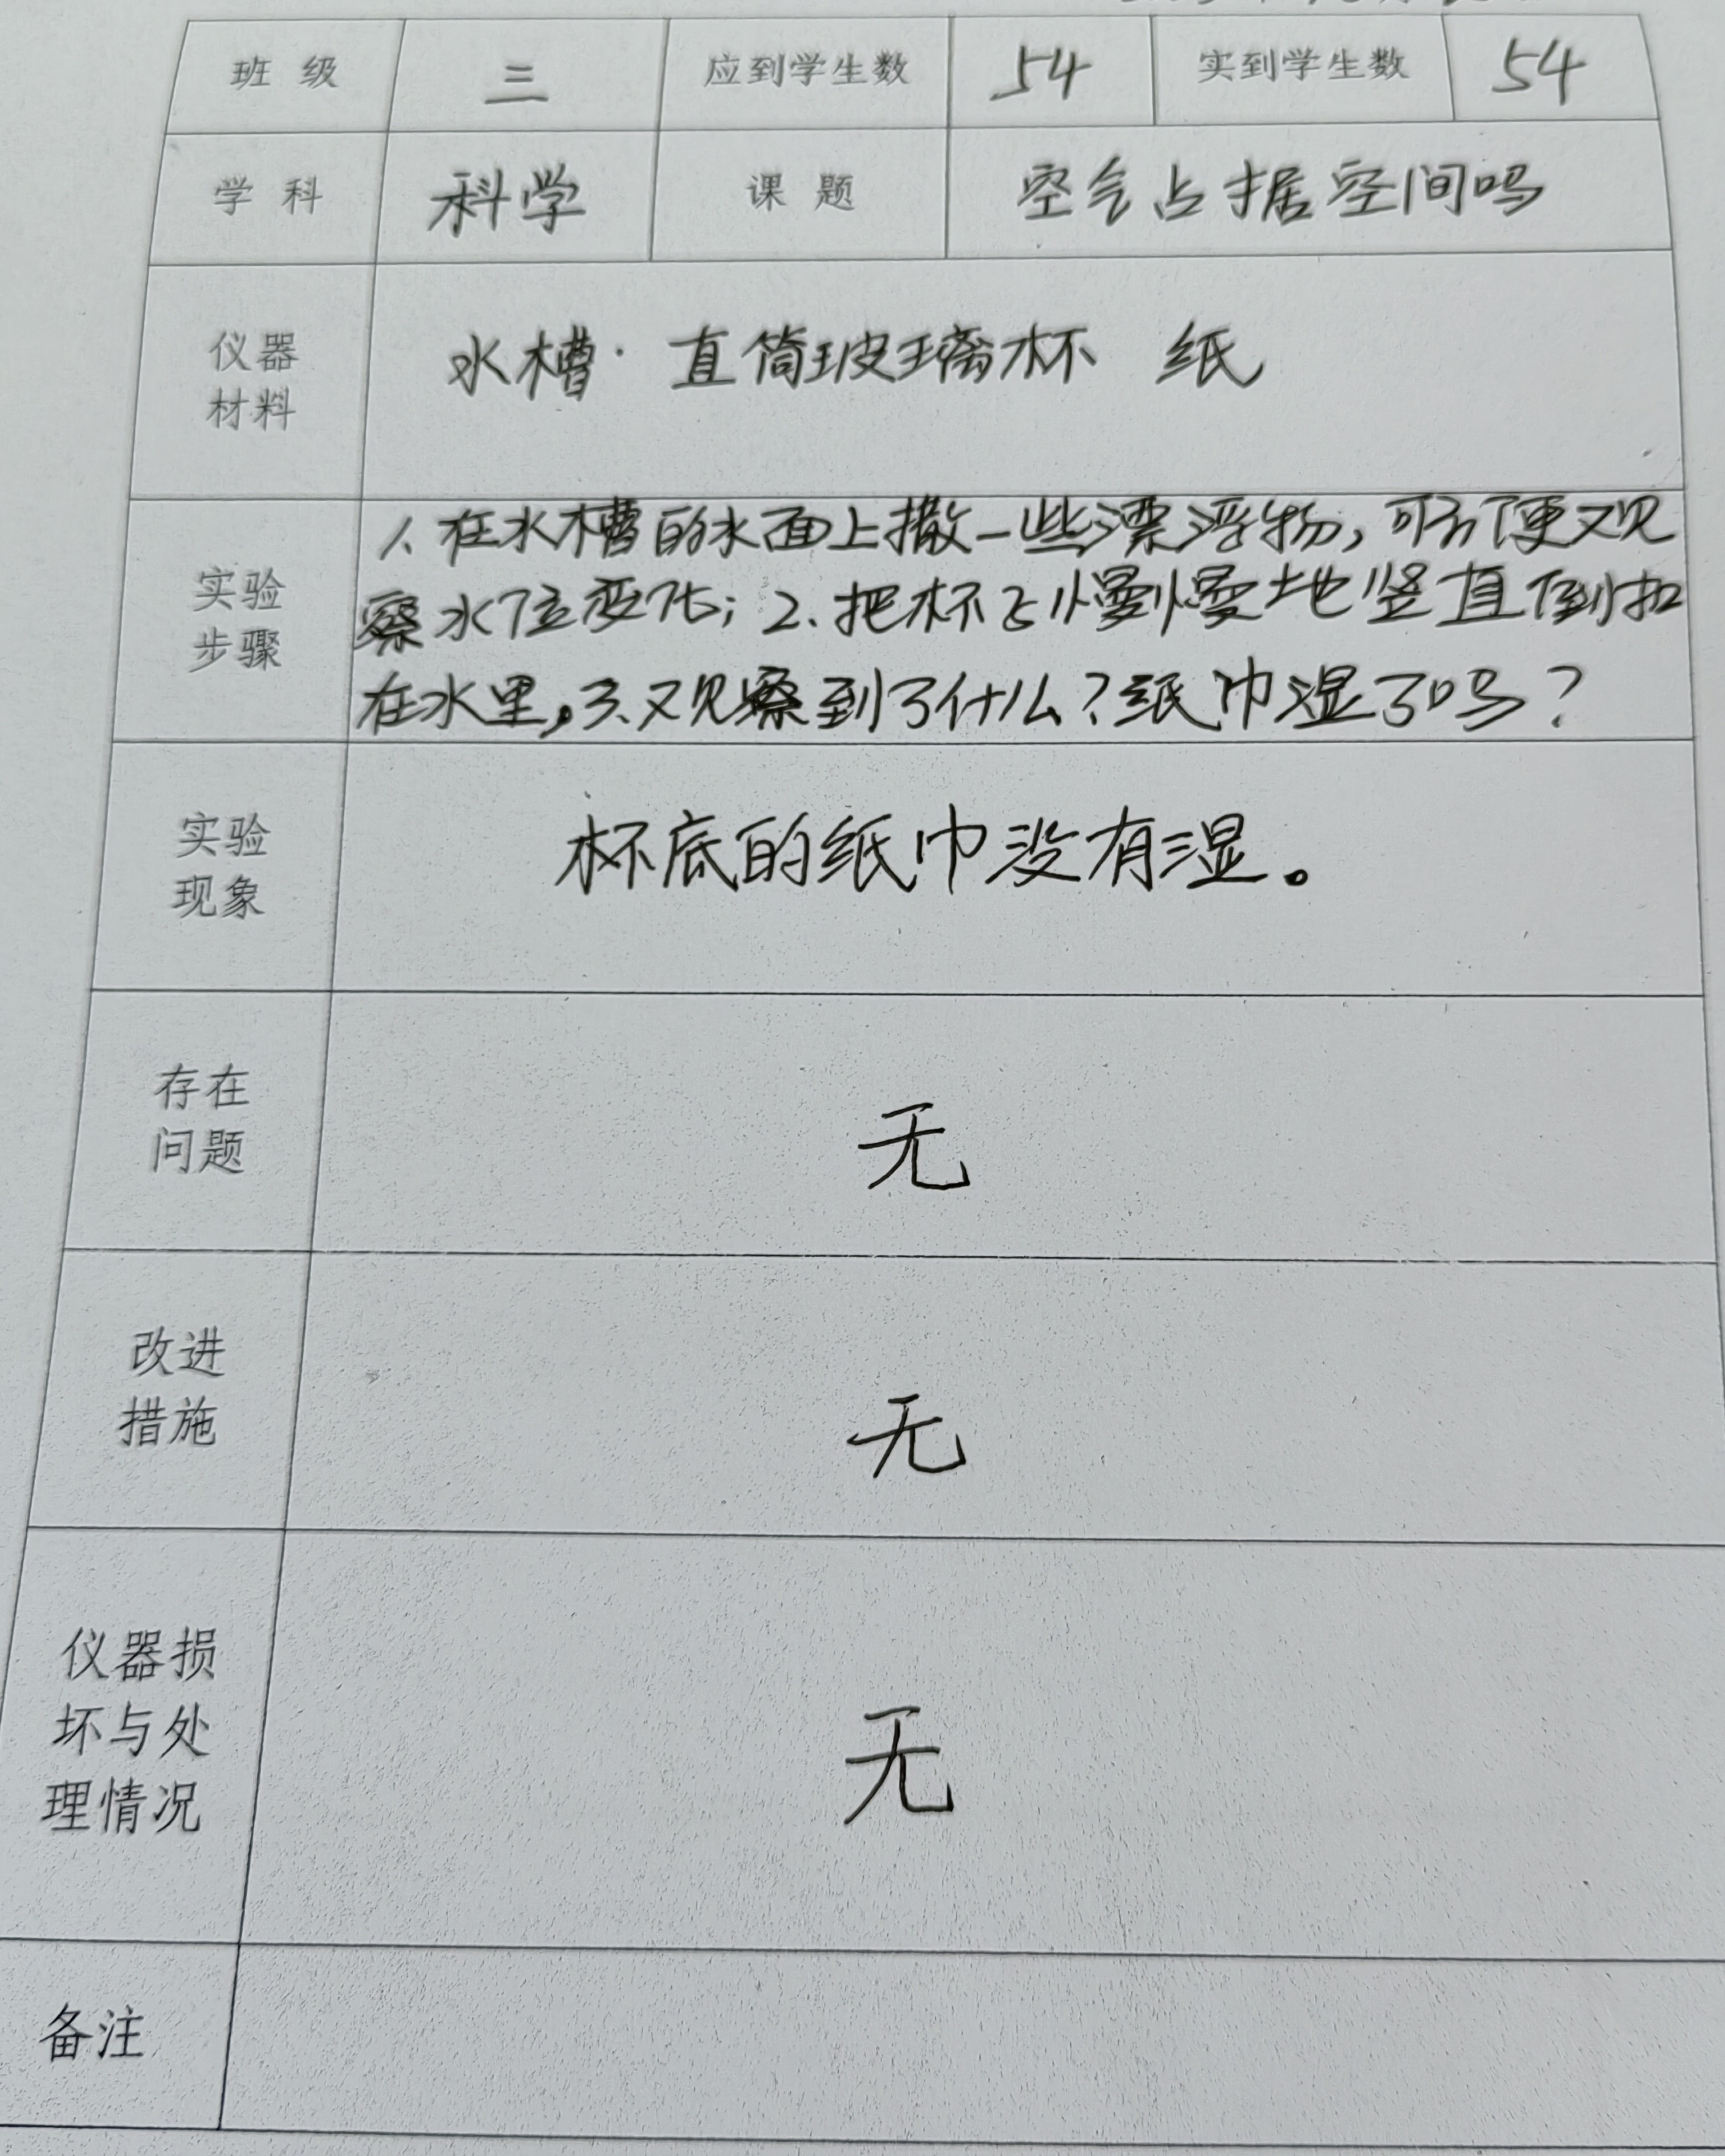 班 级 三 应到学生数 54 实到学生数 54
学 科 科学 课 题 空气占据空间吗
仪器
材料
水槽· 直筒玻璃杯 纸
实验
步骤
1、在水槽的水面上撒一些漂浮物,可方便观
察水位变化;2.把杯子慢慢地竖直倒扣
在水里,3、观察到了什么?纸巾湿了吗?
实验
现象
杯底的纸巾没有湿。
存在
问题
无
改进
措施
无
仪器损
坏与处
理情况
无
备注